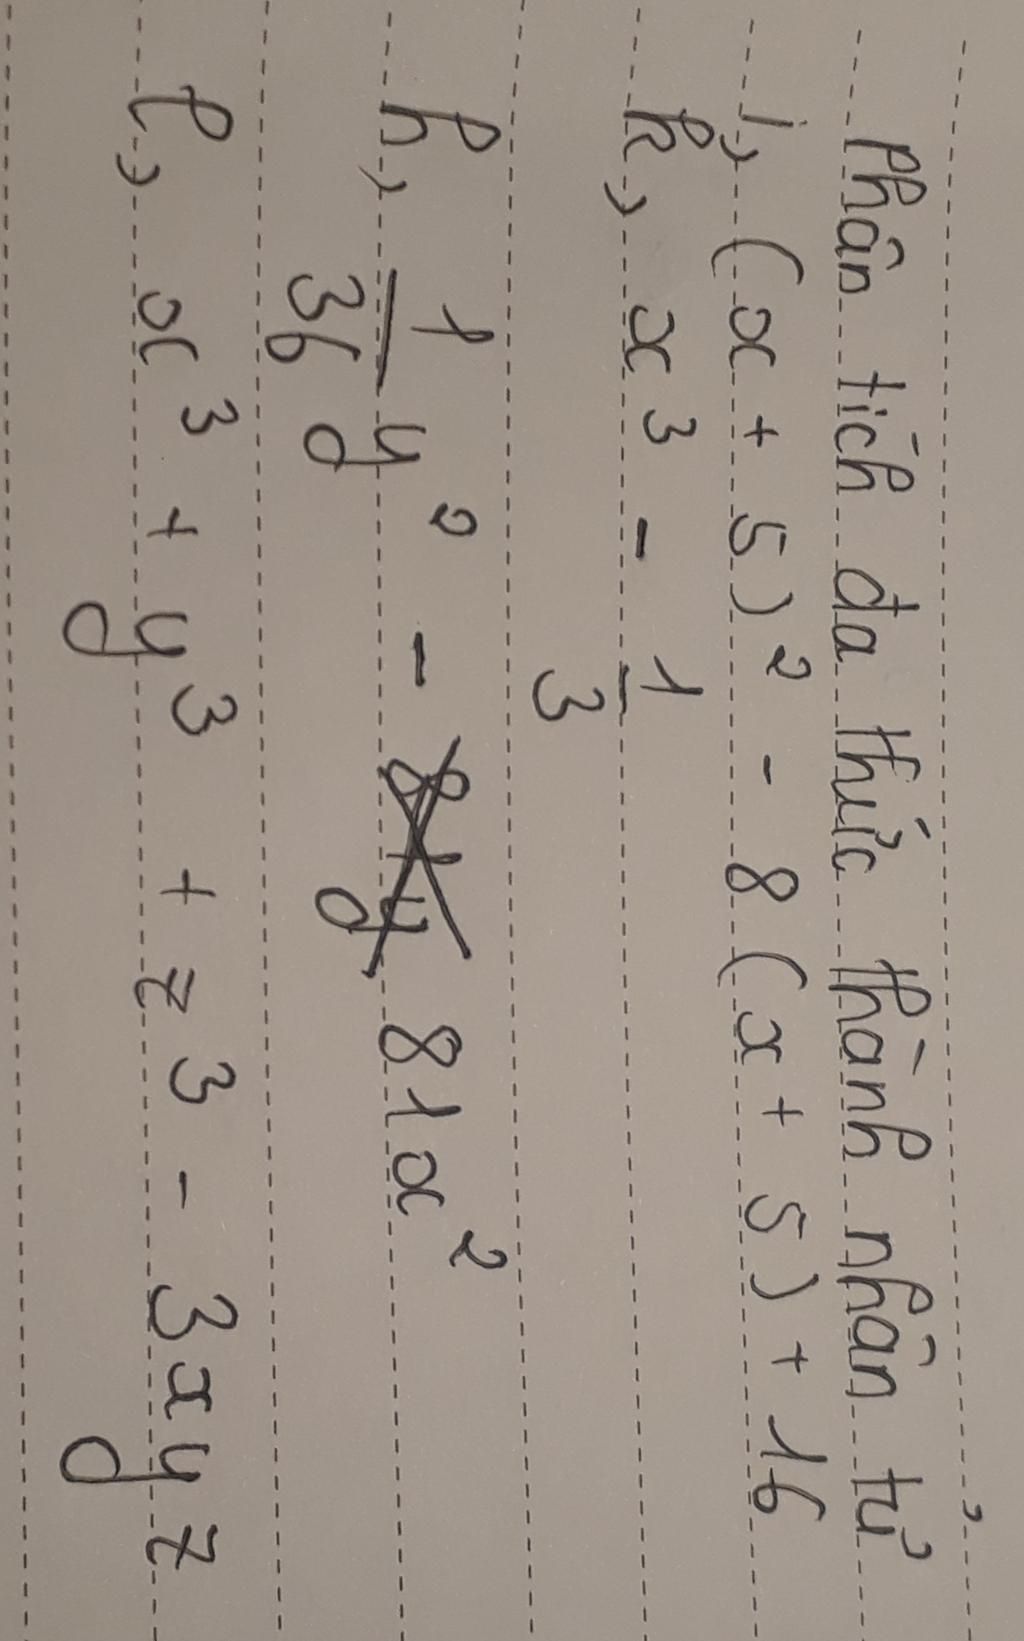 Phân tích đa thức thành nhân tử
i, (x + 5)² - 8 (x + 5) + 16
k, x³ - 1/3
h, 1/36 y² - 81x²
l, x³ + y³ + z³ - 3xyz